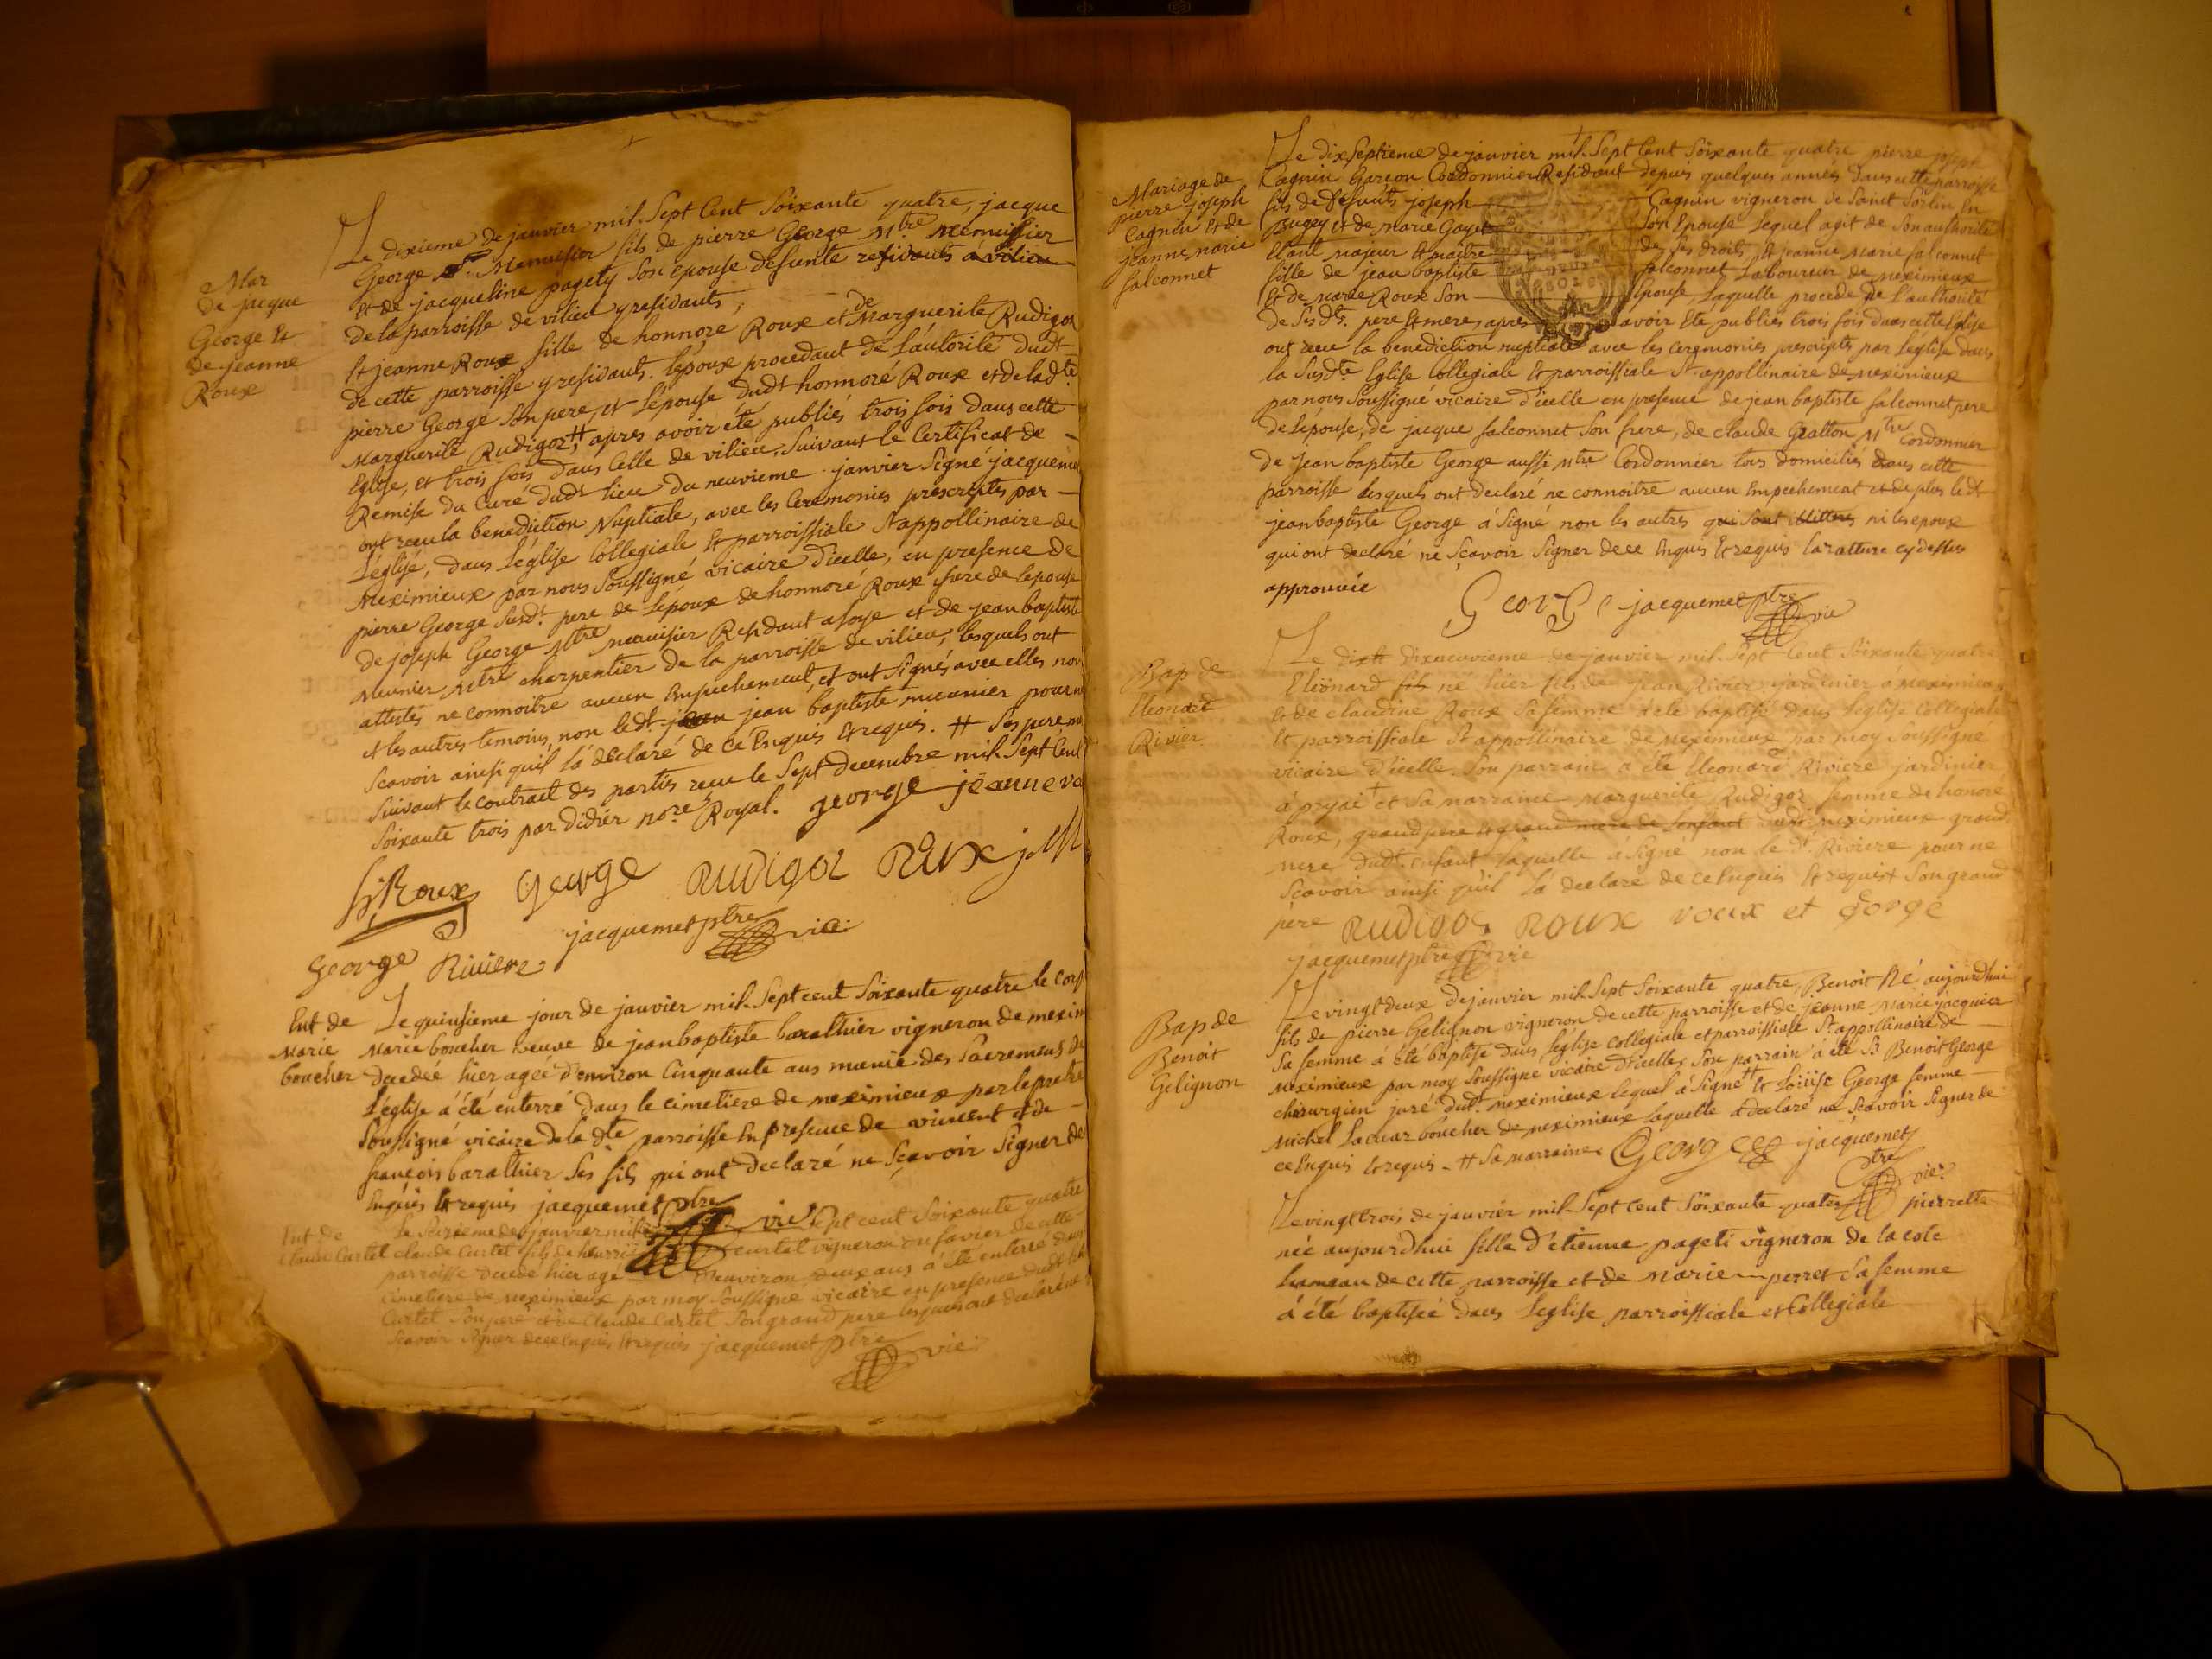 Mar
de jacque
George Et
de jeanne
Roux
Le dixieme de janvier mil. Sept Cent Soixante quatre, jacque
George Menuisier fils de pierre George Mtre Menuissier
Et de jacqueline pagety Son epouse defunte residants a vilieu
de la parroisse de vilieu y residants,
Et jeanne Roux fille de honnoré Roux et de Marguerite Rudigoz
de cette parroisse y residants. l'epoux procedant de l'autorité dudt
pierre George Son pere, et L'epouse dudt honnoré Roux et de ladte
Marguerite Rudigoz, # apres avoir été publiés trois fois dans cette
Eglise, et trois fois dans Celle de vilieu, Suivant le Certificat de
Remise du Curé dudt lieu du neuvieme janvier Signé jacquemet
ont recu la benediction Nuptiale, avec les Ceremonies prescriptes par
L'eglise, dans L'église Collegiale Et parroissiale St appollinaire de
Meximieux par nous Soussigné vicaire d'icelle, en presence de
pierre George Susdt. pere de L'epoux de honnoré Roux frere de lepouse
de joseph George Mtre menuisier Residant a loye et de jean baptiste
Meunier, Mtre charpentier de la parroisse de vilieu, lesquels ont
attestés ne connoitre aucun Empechement, et ont Signés avec elles nous
et les autres temoins, non ledt jean jean baptiste meunier pour ne
Scavoir ainsi quil la déclaré de ce Enquis Et requis. # Ses pere
Suivant le contract des parties recu le Sept Decembre mil. Sept Cent
Soixante trois par didier nore Royal. george jeanne
h, Roux George Rudigoz Roux j. M
jacquemet ptre vic:
George Riviere
Ent de
Marie
boucher
Le quinsieme jour de janvier mil. Sept cent Soixante quatre le corp
Marie boucher veuve de jean baptiste barathier vigneron de mexim
decedeé hier ageé d'environ Cinquante ans munie des Sacremens de
L'église á été enterré dans le cimetiere de meximieux par le pretre
Soussigné vicaire de la dte parroisse En presence de vincent et de
françois barathier Ses fils qui ont declaré ne Sçavoir Signer de
Enquis Et requis jacquemet ptre
vic
Ent de
Claude Curtet
Le Seizieme de janvier mil Sept cent Soixante quatre
claude Curtet fils de Curtet vigneron de cette
parroisse decedé hier agé d'environ deux ans á été enterré dans
Cimetiere de meximieux par moy Soussigné vicaire en presence dudt
Curtet Son pere et de Claude Curtet Son grand pere lesquels ont declaré ne
Scavoir Signer de ce Enquis Et requis jacquemet ptre
vic:
Mariage de
pierre joseph
Cagnin Et de
jeanne marie
falconnet
Le dixseptieme de janvier mil. Sept Cent Soixante quatre pierre joseph
Cagnin Garcon Cordonnier Residant depuis quelques annés dans cette parroisse
fils de defunts joseph Cagnin vigneron de Saint Sorlin En
Bugey et de marie Goyet Son Epouse lequel agit de Son authorité
Etant majeur Et maitre de Ses droits, Et jeanne Marie falconnet
fille de jean baptiste falconnet Laboureur de meximieux
Et de marie Roux Son Epouse, Laquelle procede de l'authorité
de Sesdts. pere Et mere, apres avoir Eté publiés trois fois dans cette Eglise
ont recu la benediction nuptiale avec les ceremonies prescriptes par Leglise dans
la Susdte Eglise Collegiale Et parroissiale St appollinaire de meximieux
par nous Soussigné vicaire d'icelle en presence de jean baptiste falconnet pere
de L'epouse, de jacque falconnet Son frere, de claude Gratton Mtre Cordonnier
de Jean baptiste George aussi Mtre Cordonnier tous domiciliés dans cette
parroisse lesquels ont declaré ne connoitre aucun Empechement et de plus ledt
jean baptiste George á Signé non les autres qui Sont illittrés ni les epoux
qui ont declaré ne Sçavoir Signer de ce Enquis Et requis la ratture cy dessus
approuvée
George jacquemet ptre
vic
Bap de
Eleonard
Rivier
Le dixh dixneuvieme de janvier mil. Sept Cent Soixante quatre
Eléonard fils né hier fils de jean Rivier jardinier á meximieux
Et de claudine Roux Sa femme á été baptisé dans L'eglise Collegiale
Et parroissiale St appollinaire de meximieux par moy Soussigné
vicaire d'icelle. Son parrain a été Eleonard Riviere jardinier
á et Sa marraine Marguerite Rudigoz femme de honoré
Roux, grand pere Et grand mere de l'enfant dudt meximieux grand
mere dudt enfant laquelle á Signé non le dt Riviere pour ne
Scavoir ainsi qu'il la declaré de ce Enquis Et requis # Son grand
pere Rudigoz Roux roux et gorge
jacquemet ptre vic
Bap de
Benoit
Gelignon
Le vingtdeux de janvier mil. Sept Soixante quatre, Benoit Né aujourdhui
fils de pierre Gelignon vigneron de cette parroisse et de jeanne Marie jacquier
Sa femme á été baptisé dans L'eglise Collegiale et parroissiale St appollinaire de
Meximieux par moy Soussigné vicaire d'icelle. Son parrain á été Sr Benoit George
chirurgien juré dudt. meximieux lequel á Signé # Et Loüise George femme
Michel Lacuar boucher de meximieux laquelle a declaré ne Scavoir Signer de
ce Enquis Et requis - # Sa marraine George jacquemet
ptre vic:
Le vingttrois de janvier mil. Sept Cent Soixante quatre pierrette
née aujourdhui fille d'etienne pageti vigneron de la cote
hameau de cette parroisse et de marie perret Sa femme
á été baptiseé dans L'eglise parroissiale et Collegiale